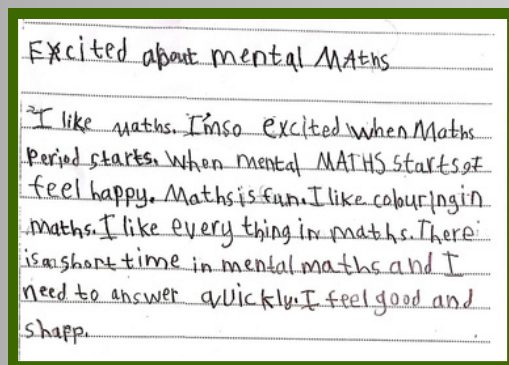 Excited about mental MAths
I like Maths. I'm so excited when Maths
Period starts. When mental MATHS starts I
feel happy. Maths is fun. I like colouring in
maths. I like every thing in maths. There
is a short time in mental maths and I
need to answer quickly. I feel good and
sharp.